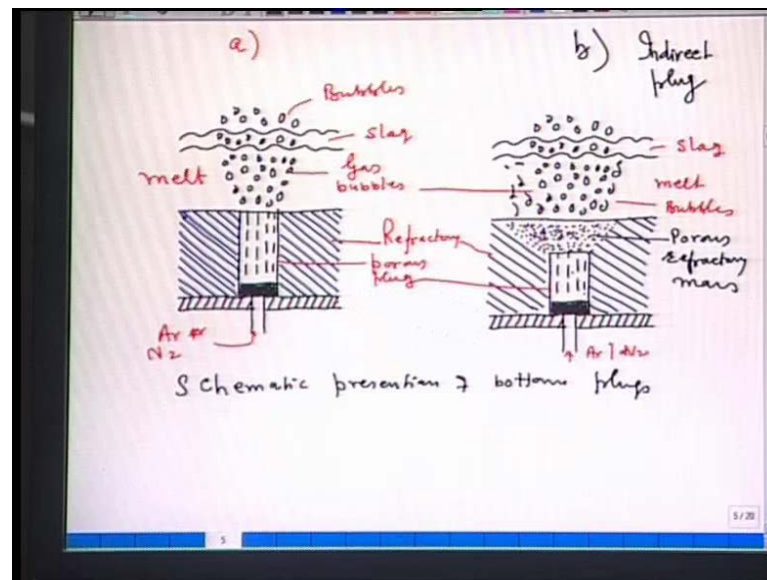 a)
b) Indirect
plug
Bubbles
slag
melt
Gas
bubbles
Refractory
porous
plug
Ar or
N2
slag
melt
Bubbles
Porous
Refractory
mass
Ar | N2
Schematic presention of bottom plugs
5/20
5